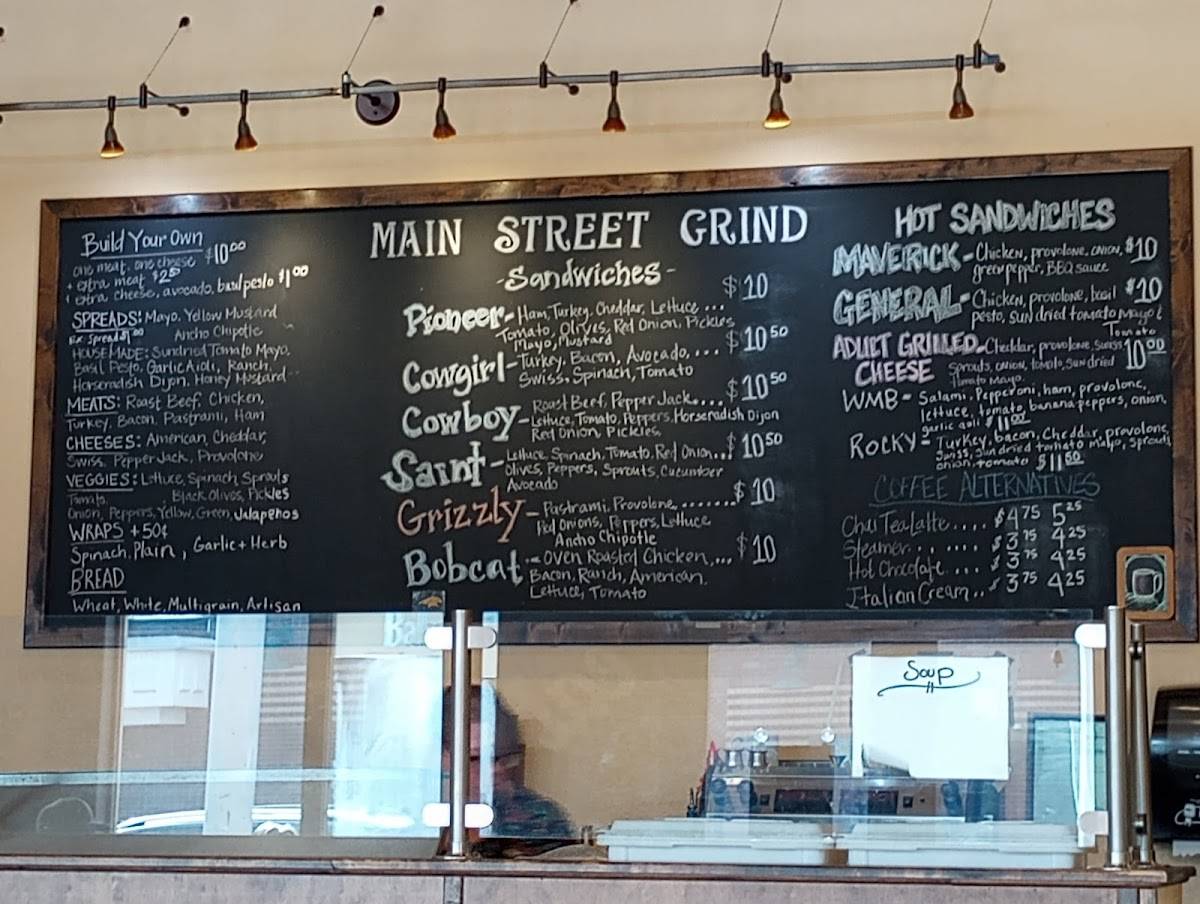 Build Your Own
one meat, one cheese $10.00
+ extra meat $2.50
+ extra cheese, avocado, basil pesto $1.00
SPREADS: Mayo, Yellow Mustard
Ex Spread $1.00 Ancho Chipotle
HOUSEMADE: Sundried Tomato Mayo,
Basil Pesto, Garlic Aioli, Ranch,
Horseradish Dijon, Honey Mustard
MEATS: Roast Beef, Chicken,
Turkey, Bacon, Pastrami, Ham
CHEESES: American, Cheddar,
Swiss, Pepper Jack, Provolone
VEGGIES: Lettuce, Spinach, Sprouts
Tomato, Black Olives, Pickles
Onion, Peppers, Yellow, Green, Jalapeños
WRAPS +50¢
Spinach, Plain, Garlic + Herb
BREAD
Wheat, White, Multigrain, Artisan
MAIN STREET GRIND
-Sandwiches-
Pioneer - Ham, Turkey, Cheddar, Lettuce ... $10
Tomato, Olives, Red Onion, Pickles
Mayo, Mustard
Cowgirl - Turkey, Bacon, Avocado, ... $10.50
Swiss, Spinach, Tomato
Cowboy - Roast Beef, Pepper Jack.... $10.50
Lettuce, Tomato, Peppers, Horseradish Dijon
Red Onion, Pickles
Saint - Lettuce, Spinach, Tomato, Red Onion... $10.50
Olives, Peppers, Sprouts, Cucumber
Avocado
Grizzly - Pastrami, Provolone........ $10
Red Onions, Peppers, Lettuce
Ancho Chipotle
Bobcat - Oven Roasted Chicken,... $10
Bacon, Ranch, American,
Lettuce, Tomato
HOT SANDWICHES
MAVERICK - Chicken, provolone, onion, $10
green pepper, BBQ sauce
GENERAL - Chicken, provolone, basil $10
pesto, sun dried tomato mayo &
Tomato
ADULT GRILLED - Cheddar, provolone, swiss 10.00
CHEESE sprouts, onion, tomato, sun dried
tomato mayo
WMB - Salami, Pepperoni, ham, provolone,
lettuce, tomato, banana peppers, onion,
garlic aoli $11.00
ROCKY - Turkey, bacon, Cheddar, provolone,
swiss, sun dried tomato mayo, sprouts,
onion, tomato $11.50
COFFEE ALTERNATIVES
Chai Tea Latte..... $4.75 5.25
Steamer... ...... $3.75 4.25
Hot Chocolate.... $3.75 4.25
Italian Cream.. $3.75 4.25
Soup